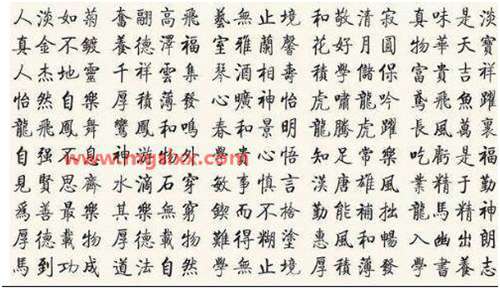 人淡如菊 奮翮高飛 藝無止境 和敬清寂 真味是淡
真金不鍍 養德澤福 室雅蘭馨 花好月圓 物華天寶
人杰地靈 千祥雲集 琴 積學儲保 富貴吉祥
怡然自樂 厚積薄發 曠神怡 虎嘯龍吟 鳶飛魚躍
龍飛鳳舞 鸞鳳和鳴 春和景明 龍騰虎躍 長風萬裏
自强不息 神游物外 學貴心悟 知足常樂 吃虧是福
www.mgalxx.com
見賢思齊 水滴石穿 敏事慎言 漢唐雄風 業精于勤
爲善最樂 其樂無窮 鍥而不捨 勤能補拙 龍馬精神
厚德載物 難得糊塗 惠風和暢 入幽出朗
馬到功成 道法自然 學無止境 厚積薄發 學書養志